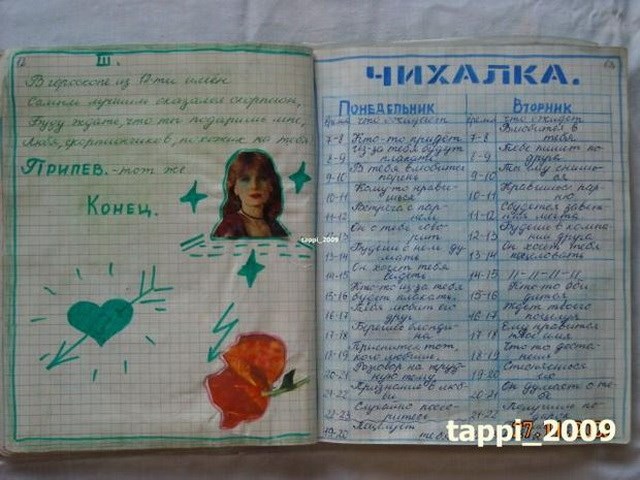 12
III.
В гороскопе из 12-ти имён
Самым лучшим оказался скорпион,
Буду ждать, что ты подаришь мне,
похожих на тебя
Припев.-тот же
Конец.
tappi_2009
ЧИХАЛКА.
Понедельник
Время что ожидает
7-8 Кто-то придёт
8-9 Из-за тебя будут плакать
9-10 В тебя влюбится парень
10-11 Кому-то нравишься
11-12 Встреча с парнем
12-13 Он с тебе говорит
13-14 Будешь о нём думать
14-15 Он хочет тебя видеть
15-16 Кто-то из за тебя будет плакать.
16-17 Тебя любит его друг
17-18 Берегись блондина
18-19 Приснится тот, кого любишь.
20-21 Разговор на трудную тему
21-22 Признание о любви
22-23 Случайно поссоритесь
19-20 Поцелует тебя
Вторник
время что ожидает
7-8 Влюбится в тебя
8-9 Тебе пишет подруга
9-10 Ты ему снишься
10-11 Нравишься парню
11-12 Сбудется заветная мечта
12-13 Будешь в компании друга
13-14 Он хочет тебя поцеловать
14-15 11-11-11-11
15-16 Кто-то обидится
16-17 Ждёт твоего поцелуя
17-18 Ему нравится твоё имя
18-19 Что-то достанешь
19-20 Стесняешься
20-21 Он думает о тебе
21-22 Получишь подарок
tappi_2009